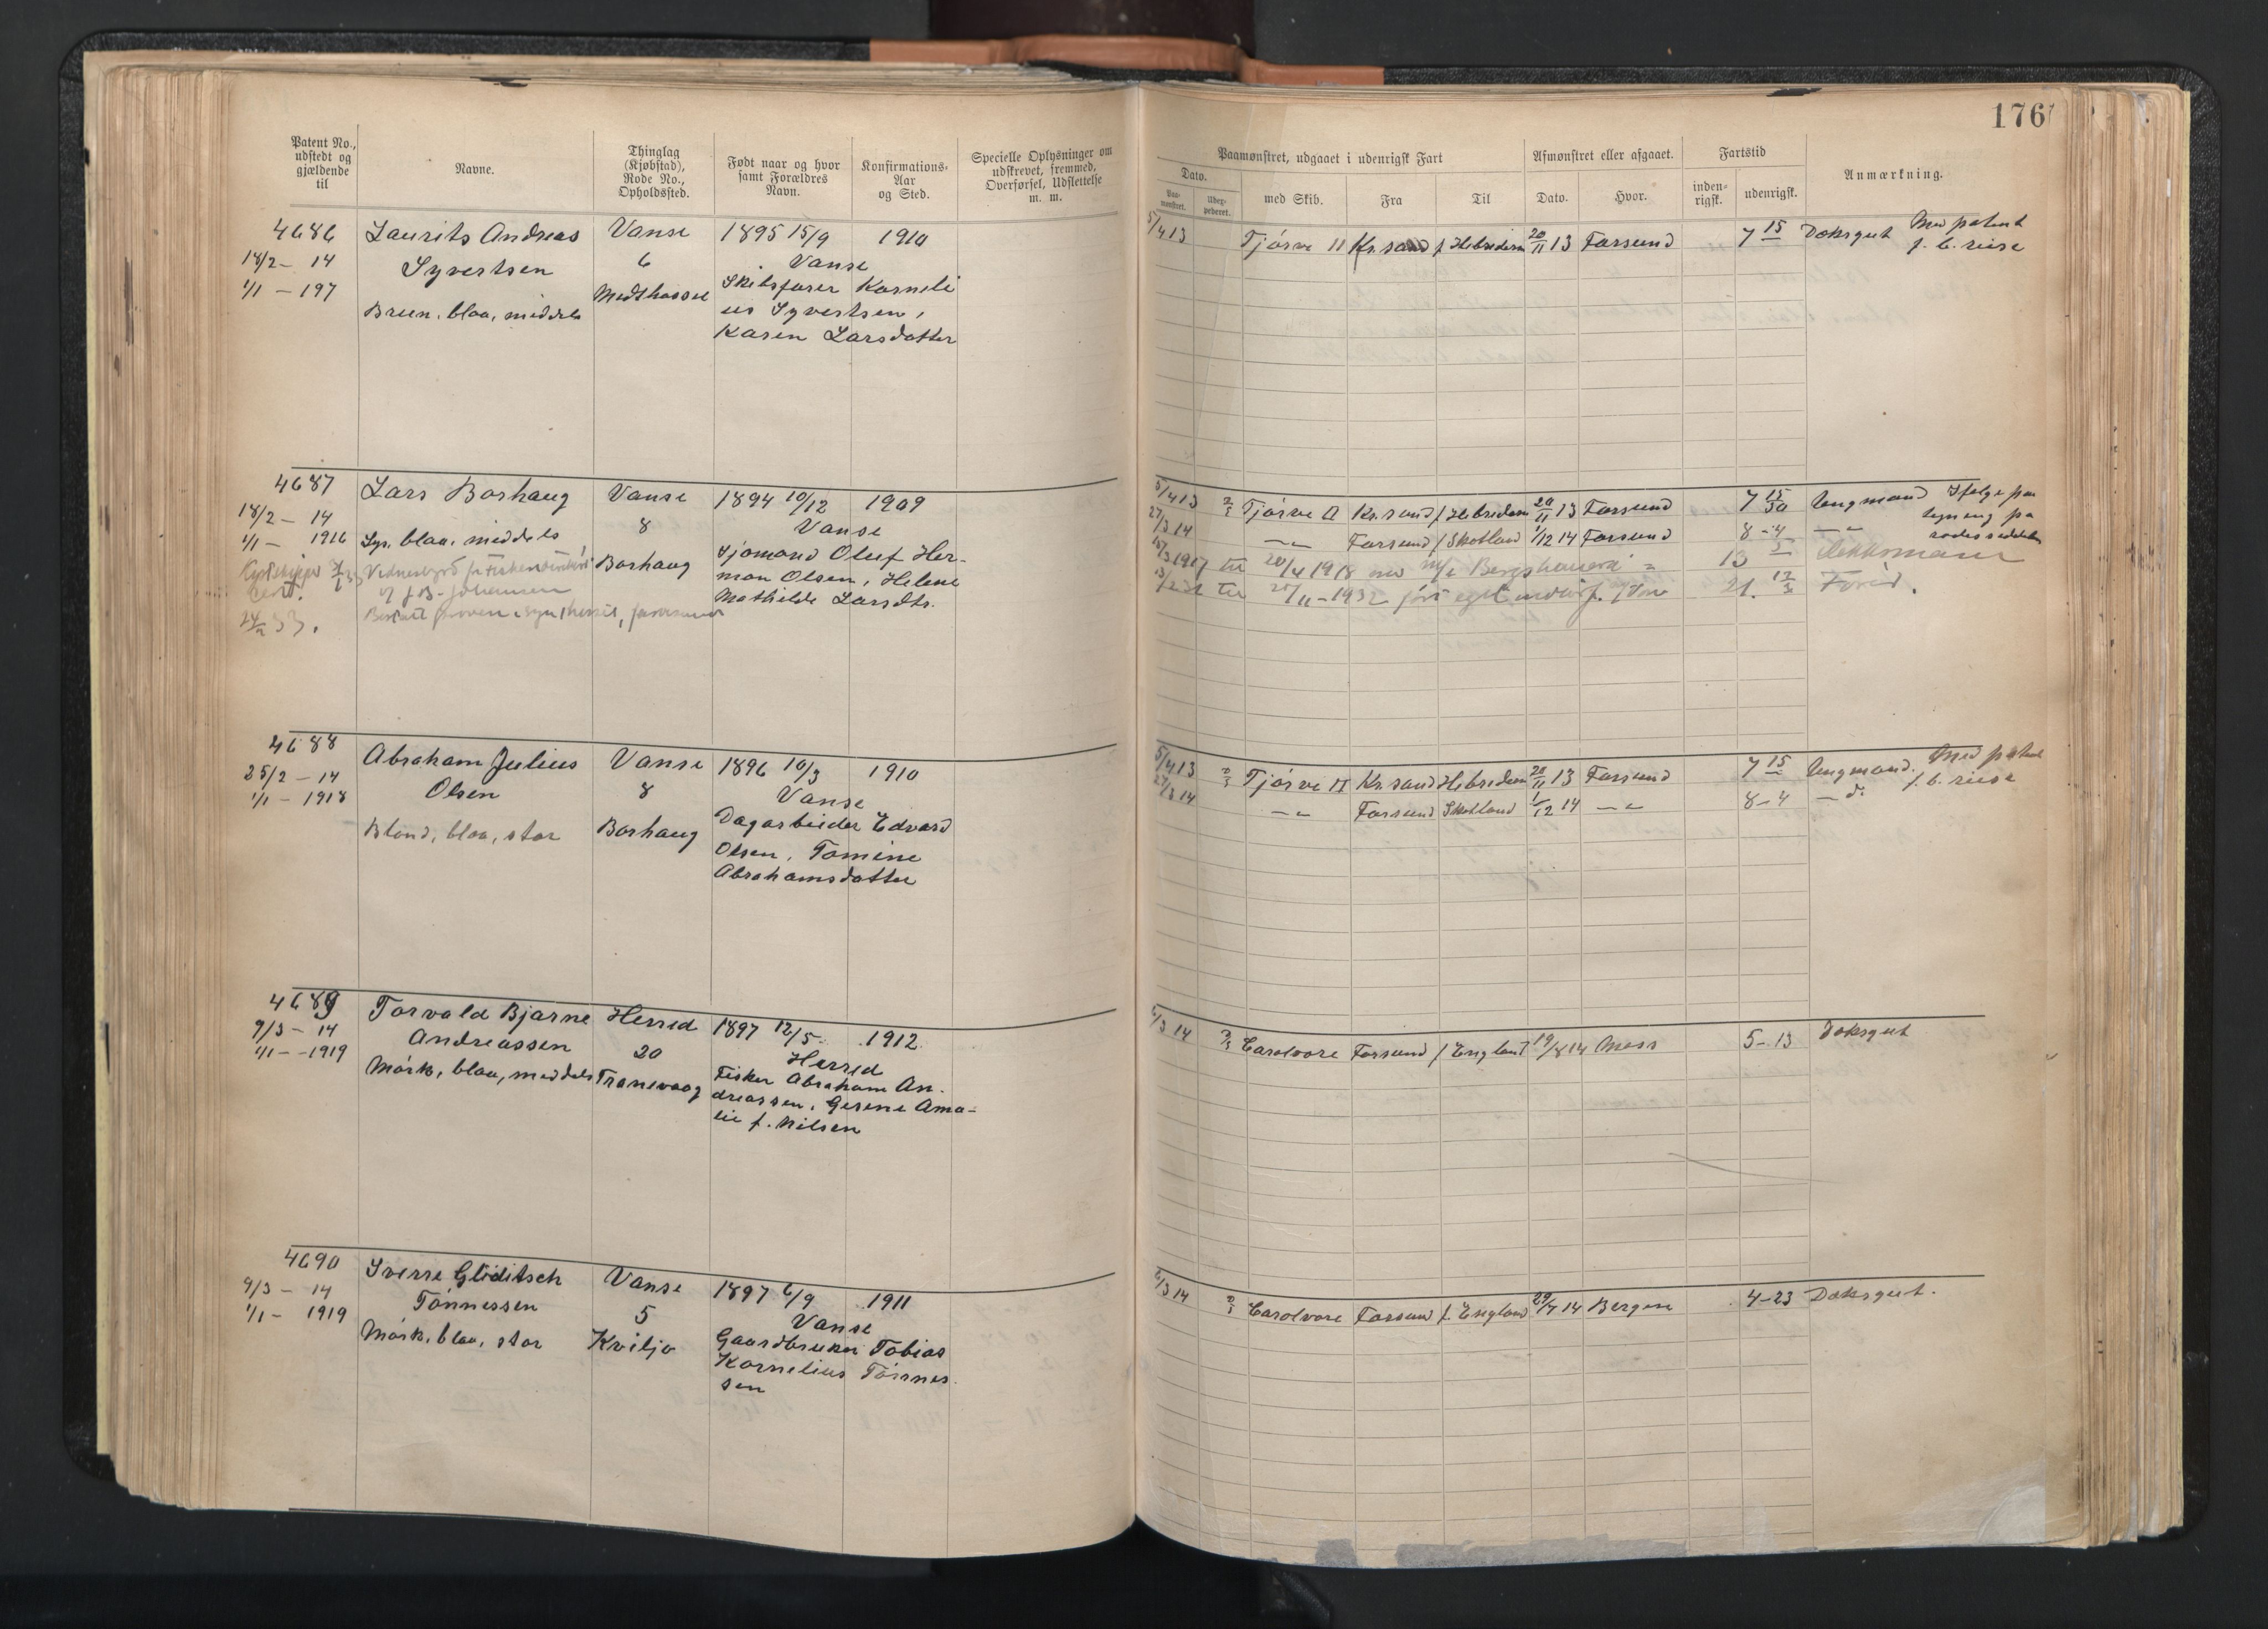 176
Patent No., udstedt og gjældende til
Navne.
Thinglag (Kjøbstad), Rode No., Opholdssted.
Født naar og hvor samt Forældres Navn.
Konfirmations-Aar og Sted.
Specielle Oplysninger om udskrevet, fremmed, Overførsel, Udslettelse m. m.
Paamønstret, udgaaet i udenrigsk Fart
Afmønstret eller afgaaet.
Fartstid
Anmærkning.
Dato.
Paa-mønstret.
Udex-pederet.
med Skib.
Fra
Til
Dato.
Hvor.
inden-rigsk.
udenrigsk.
4686
Laurits Andreas
Vanse
1895 15/9
1910
18/2 - 14
Syvertsen
6
Vanse
1/1 - 197
Medhassel
Skibsfører Korneli
Brun, blaa, middels
us Syvertsen,
Karen Larsdatter
5/4 13
Tjørve II
Kr.sand
f Hebriderne
20/11 13
Farsund
7 15
Doksgut
Med patent
f. b. reise
4687
Lars Borhaug
Vanse
1894 10/12
1909
18/2 - 14
8
Vanse
1/1 - 1916
Lys, blaa, middels
Borhaug
Sjømand Oluf Her-
man Olsen, Helene
Mathilde Larsdtr.
24/2 33.
5/4 13
Tjørve II
Kr.sand
f Hebriderne
20/11 13
Farsund
7 15/30
Ungmand
Ifølge paa
tegning på
rodesseddelen
27/3 14
Farsund
f Skotland
1/12 14
Farsund
8-4
til 20/4 1918
13
til
- 1932
21.
4688
Abraham Julius
Vanse
1896 10/3
1910
25/2 - 14
Olsen
8
Vanse
1/1 - 1918
Blond, blaa, stor
Borhaug
Dagarbeider Edvard
Olsen, Tomine
Abrahamsdatter
5/4 13
Tjørve II
Kr.sand
Hebriderne
20/11 13
Farsund
7 15
Ungmand.
Med patent
f. b. reise
27/3 14
Farsund
Skotland
1/12 14
8-4
4689
Torvald Bjarne
Herred
1897 12/5
1912
9/3 - 14
Andreassen
20
Herred
1/1 - 1919
Mørk, blaa, middels
Tranevaag
Fisker Abraham An-
dreassen, Gesine Ama-
lie f. Nilsen
6/3 14
Carolvore
Farsund
f England
19/8 14
Moss
5-13
Doksgut
4690
Sverre Gloditsch
Vanse
1897 6/9
1911
9/3 - 14
Tønnessen
5
Vanse
1/1 - 1919
Mørk, blaa, stor
Kviljo
Gaardbruker Tobias
Kornelius Tønnes
sen
6/3 14
Carolvore
Farsund
f. England
29/7 14
Bergen
4-23
Doksgut.